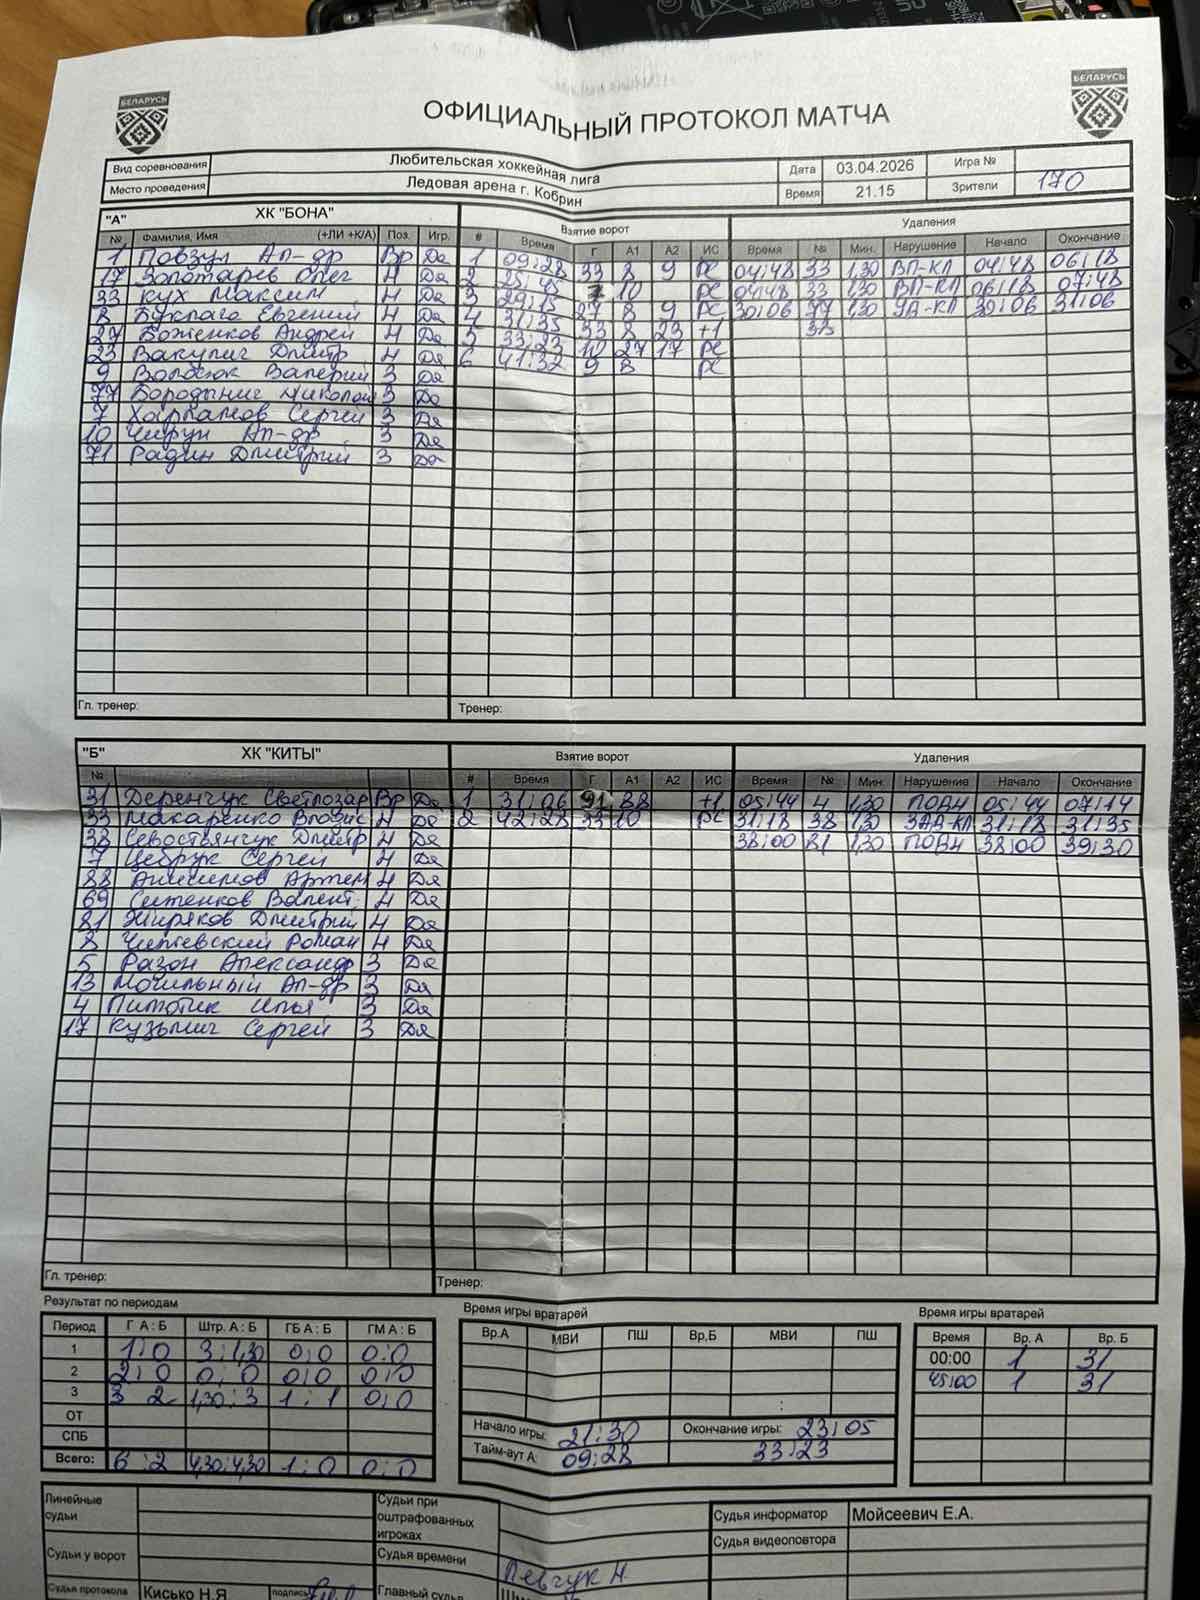 БЕЛАРУСЬ БЕЛАРУСЬ
ОФИЦИАЛЬНЫЙ ПРОТОКОЛ МАТЧА
Вид соревнования Любительская хоккейная лига Дата 03.04.2026 Игра №
Место проведения Ледовая арена г. Кобрин Время 21.15 Зрители 170
"А" ХК "БОНА" Взятие ворот Удаления
№ Фамилия, Имя (+ЛИ +К/А) Поз. Игр. # Время Г А1 А2 ИС Время № Мин. Нарушение Начало Окончание
1 Повзун Ал-др Вр Да 1 09:28 33 8 9 РС 04:48 33 1,30 ВП-КЛ 04:48 06:18
17 Золотарев Олег Н Да 2 25:45 7 10 РС 04:48 33 1,30 ВП-КЛ 06:18 07:48
33 Кух Максим Н Да 3 29:15 27 8 9 РС 30:06 77 1,30 УА-КЛ 30:06 31:06
8 Буклага Евгений Н Да 4 31:35 33 8 23 +1 33
27 Боженков Андрей Н Да 5 33:23 10 27 17 РС
23 Вакулич Дмитр Н Да 6 41:32 9 8 РС
9 Волосюк Валерий З Да
77 Бородынич Николай З Да
7 Харламов Сергей З Да
10 Чирун Ал-др З Да
71 Радин Дмитрий З Да
Гл. тренер: Тренер:
"Б" ХК "КИТЫ" Взятие ворот Удаления
№ # Время Г А1 А2 ИС Время № Мин. Нарушение Начало Окончание
31 Деренчук Светлозар Вр Да 1 31:06 91 88 +1 05:44 4 1,30 ПОДН 05:44 07:14
33 Макаренко Владис Н Да 2 42:28 33 10 РС 31:18 38 1,30 ЗАД-КЛ 31:18 31:35
38 Севостьянчук Дмитр Н Да 38:00 81 1,30 ПОДН 38:00 39:30
7 Цебрук Сергей Н Да
88 Анисимов Артем Н Да
69 Ситенков Валент. Н Да
81 Жиряков Дмитрий Н Да
8 Чипчевский Роман Н Да
5 Разон Александр З Да
13 Могильный Ал-др З Да
4 Пилютик Илья З Да
17 Кузьмич Сергей З Да
Гл. тренер: Тренер:
Результат по периодам Время игры вратарей Время игры вратарей
Период Г А : Б Штр. А : Б ГБ А : Б ГМ А : Б Вр.А МВИ ПШ Вр,Б МВИ ПШ Время Вр. А Вр. Б
1 1:0 3:1,30 0:0 0:0 00:00 1 31
2 2:0 0:0 0:0 0:0 45:00 1 31
3 3 2 1,30:3 1:1 0:0 :
ОТ
СПБ
Начало игры: 21:30 Окончание игры: 23:05
Всего: 6:2 4,30:4,30 1:0 0:0 Тайм-аут А: 09:28 33:23
Линейные судьи Судьи при оштрафованных игроках Судья информатор Мойсеевич Е.А.
Судья видеоповтора
Судьи у ворот Судья времени Левчук Н.
Судья протокола Кисько Н.Я подпись Главный судья